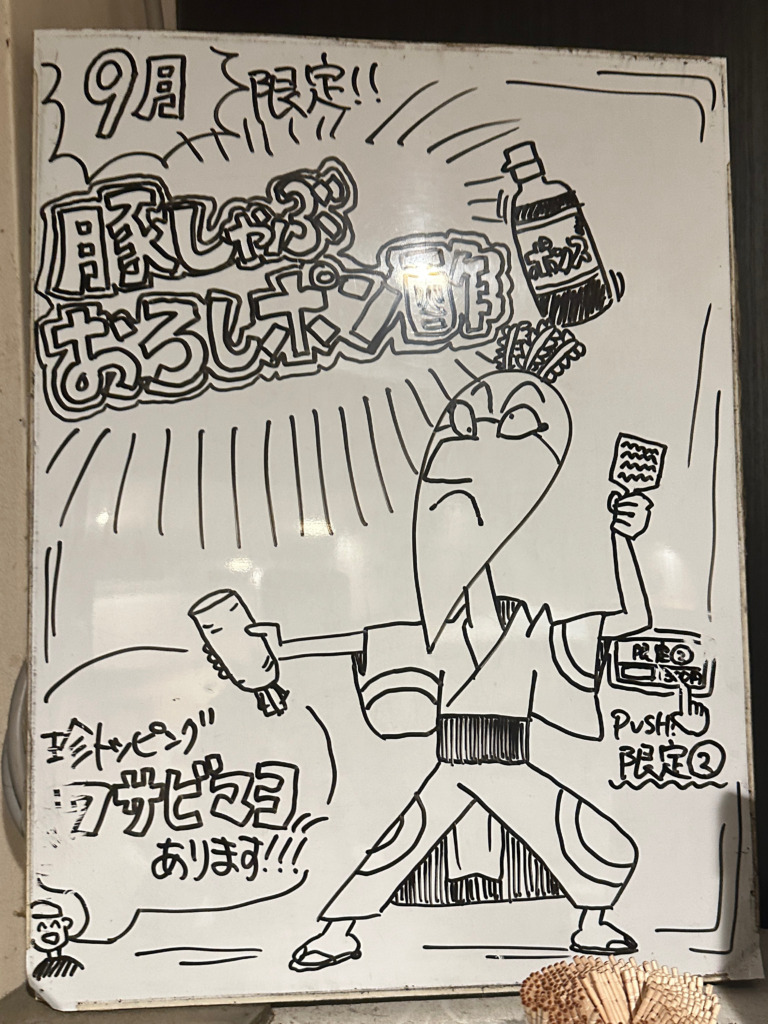 9月 限定!!
豚しゃぶ
おろしポン酢
ポンズ
限定②
PUSH!
限定②
珍トッピング
ワサビマヨ
あります!!!